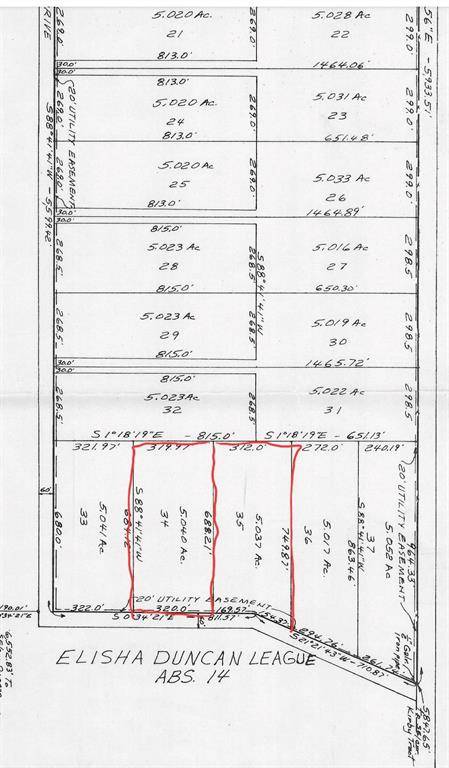 5.020 Ac.
21
5.028 Ac
22
RIVE
269.0'
269.0'
299.0'
56"E - 5933.51'
813.0'
1464.06'
30.0'
30.0'
813.0'
269.0'
20' UTILITY EASEMENT
5.020 Ac.
24
269.0'
5.031 Ac
23
299.0'
813.0'
651.48'
S 88°41'41"W - 5,599.42'
269.0'
5.020 Ac
25
269.0
5.033 Ac
26
299.0'
813.0'
1464.89'
30.0'
30.0'
815.0'
268.5'
5.023 Ac
28
268.5'
S 88°41'41"W
5.016 Ac
27
298.5
815.0'
650.30'
268.5'
5.023 Ac
29
5.019 Ac
30
298.5
815.0'
1465.72'
30.0'
30.0'
815.0'
268.5'
5.023 Ac
32
268.5'
5.022 Ac
31
298.5
S 1°18'19"E - 815.0'
S 1°18'19"E - 651.13'
321.97'
319.97'
312.0'
272.0'
240.19'
60'
680.0'
33
5.041 Ac
S 88°41'41"W
34
5.040 Ac.
688.21'
35
5.037 Ac.
749.87'
36
5.017 Ac.
37
S 88°41'41"W
863.46'
5.052 Ac
20' UTILITY EASEMENT
964.33
20' UTILITY EASEMENT
322.0'
320.0'
169.57'
S 0°34'21"E
811.57'
60'
154.37'
294.76'
261.74'
S 21°21'43"W - 710.87'
ELISHA DUNCAN LEAGUE
ABS. 14
6,552.83' To
5847.65'
Kirby Tract